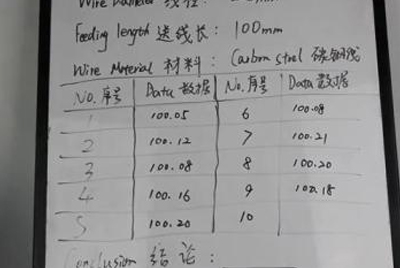 Wire Diameter 线径：
Feeding length 送线长：100mm
Wire Material 材料：Carbon steel 碳钢线
No. 序号 Data 数据 No. 序号 Data 数据
1 100.05 6 100.08
2 100.12 7 100.21
3 100.08 8 100.20
4 100.16 9 100.18
5 100.20 10
Conclusion 结论：